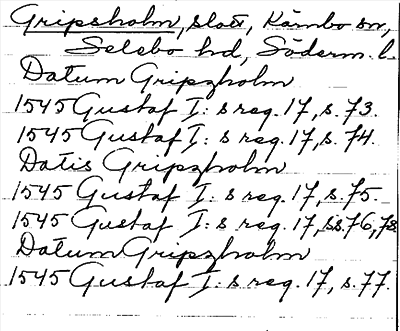 Gripsholm, slott, Kärnbo sn,
Selebo hd, Söderm. l.
Datum Gripzholm
1545 Gustaf I: s reg. 17, s. 73.
1545 Gustaf I: s reg. 17, s. 74.
Datis Gripzholm
1545 Gustaf I: s reg. 17, s. 75.
1545 Gustaf I: s reg. 17, ss. 76, 78.
Datum Gripzholm
1545 Gustaf I: s reg. 17, s. 77.